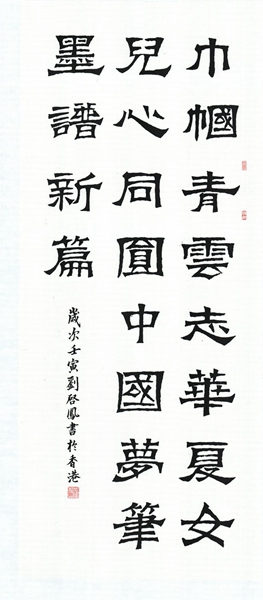 巾幗青雲志華夏女
兒心同圓中國夢筆
墨譜新篇
歲次壬寅劉啓鳳書於香港